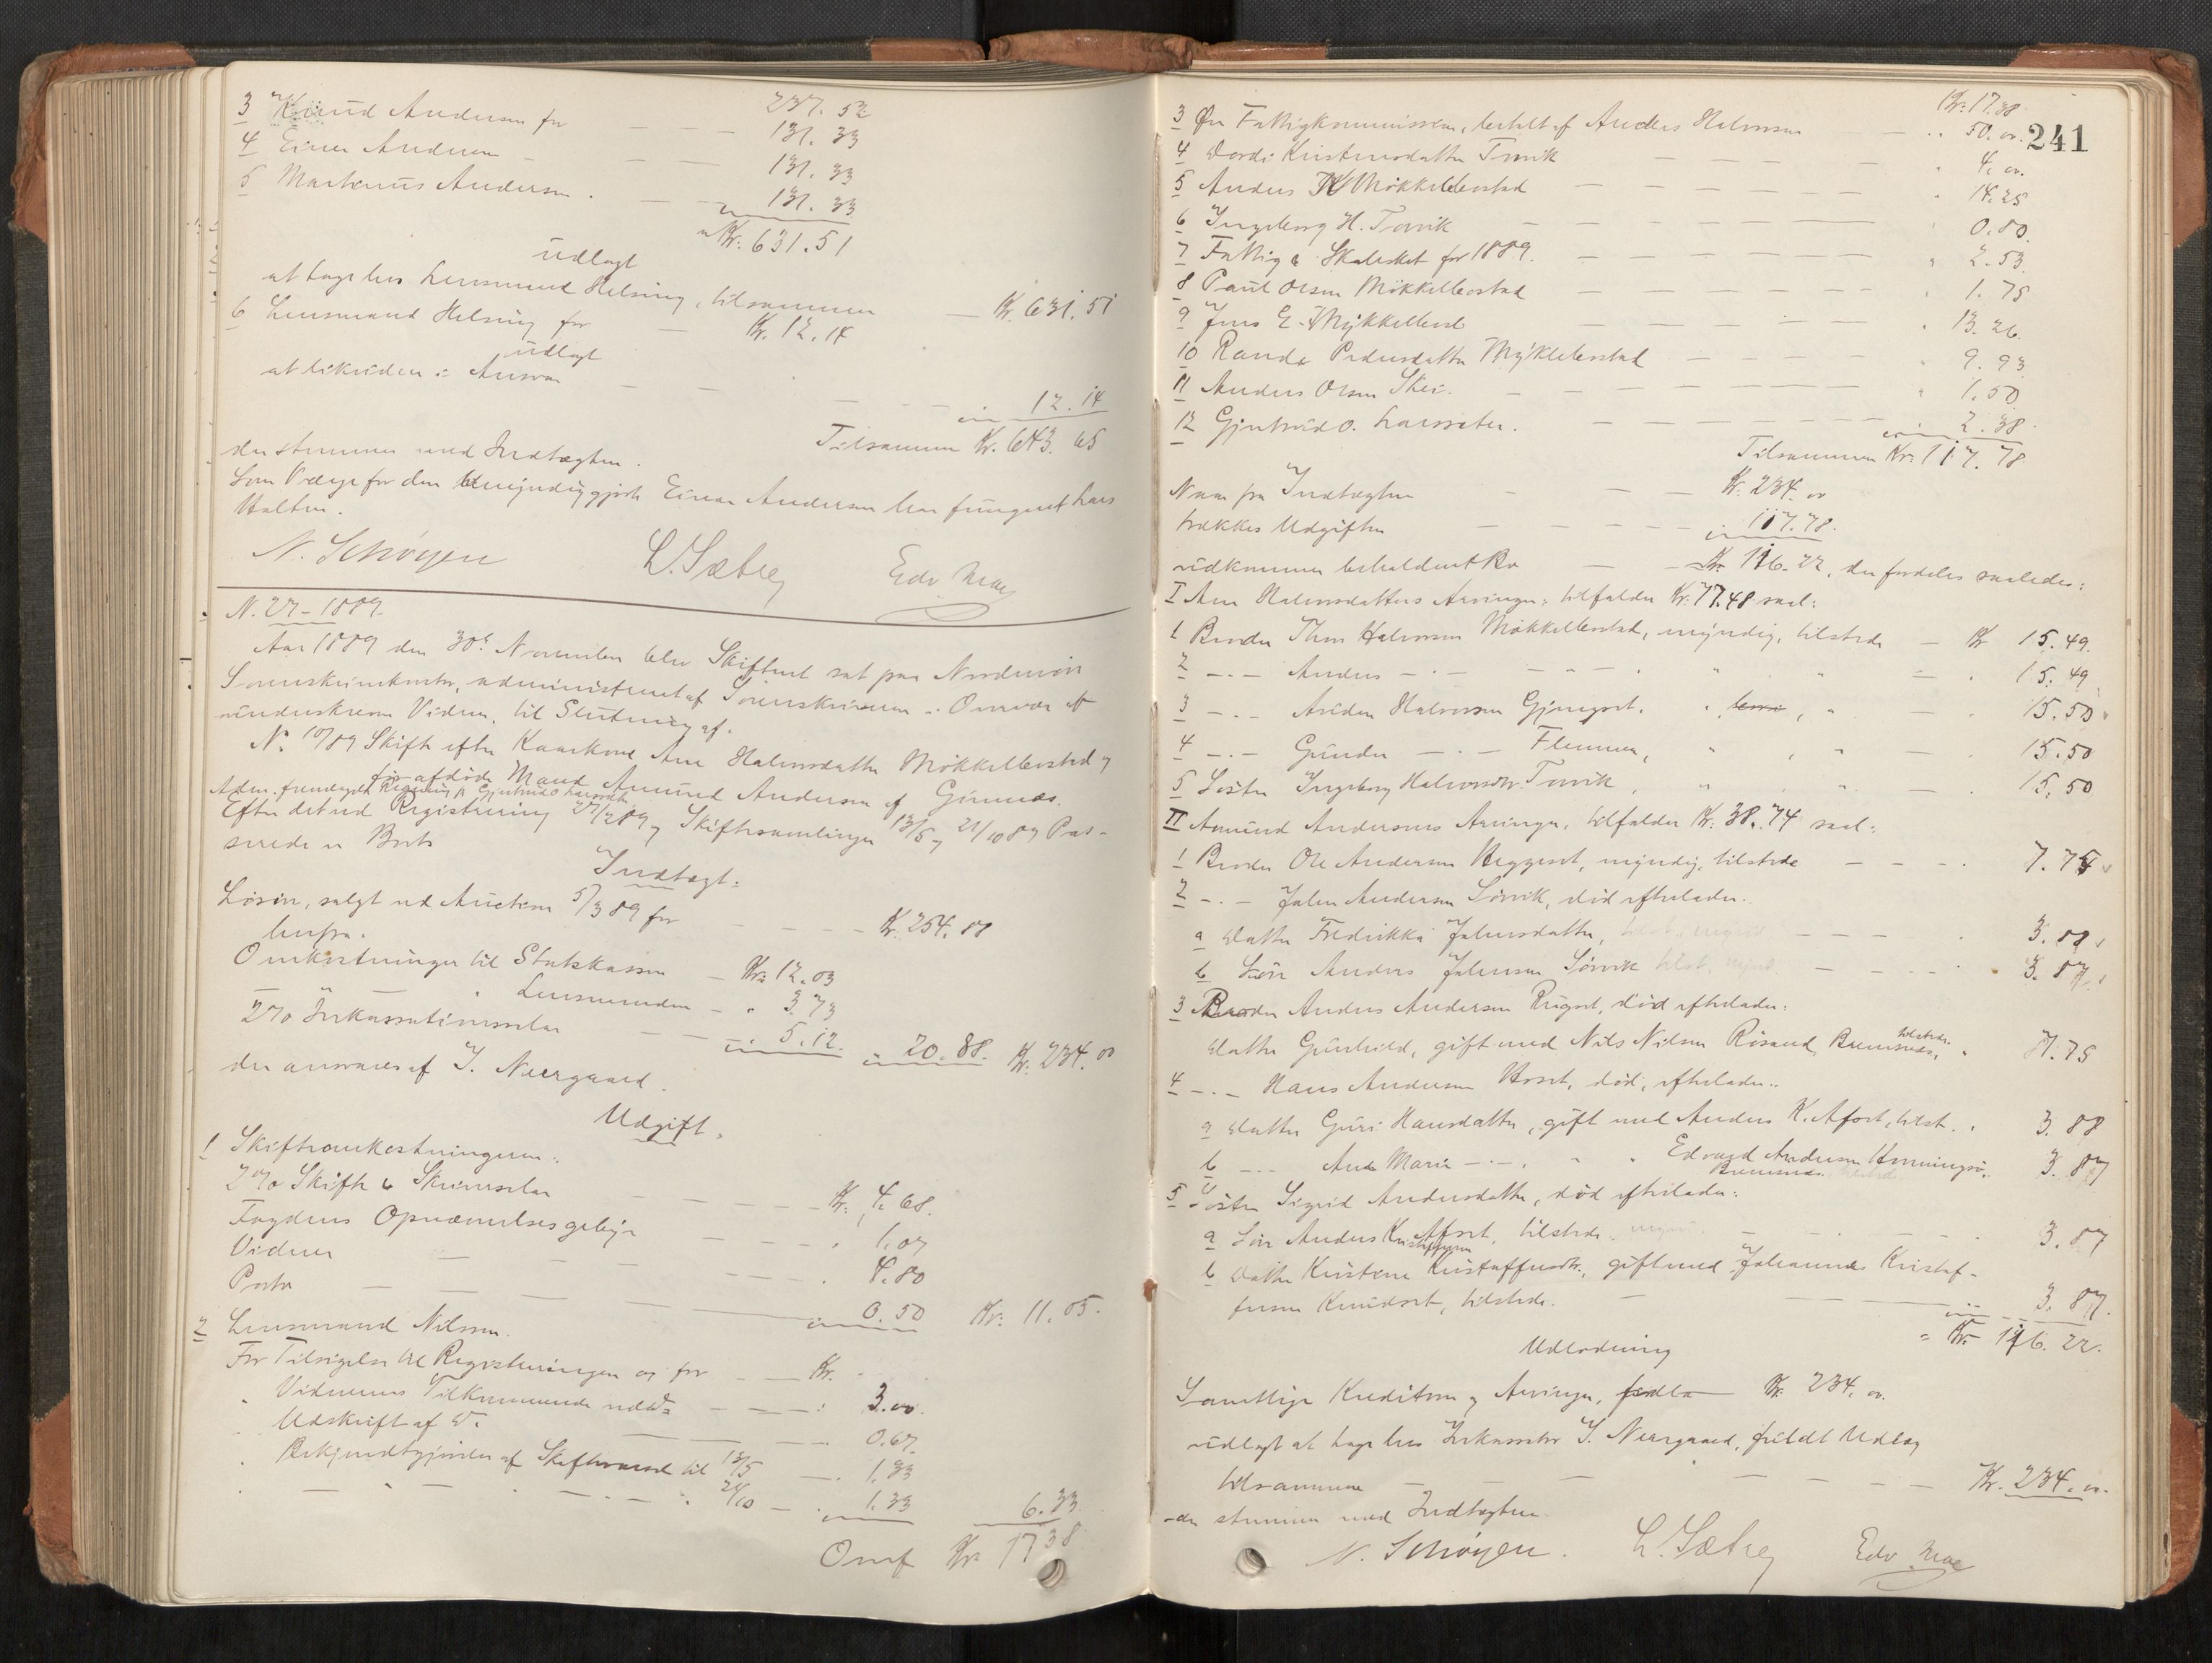 3 Knud Andersen for — — — 237.52
4 Einar Andersen — — — 131.33
5 Martinus Andersen. — — 131.33
131.33
Kr. 631.51
udlagt
at tage hos Lensmand Helsing, tilsammen — Kr. 631.51
6 Lensmand Helsing for — Kr. 12.14
udlagt
at likvidere i Ansvar — — — — 12.14
Tilsammen Kr. 643.65
der stemmer med Indtægten.
Som Værge for den umyndiggjorte Einar Andersen har fungeret Lars
Holten.
N. Schøyen L. Sæbye Edv. Moe
N. 27 – 1889.
Aar 1889 den 30te November blev Skifteret sat paa Nordmør
Sorenskriverkontor, administreret af Sorenskriveren i Overvær af
underskrevne Vidner, til Slutning af.
No 10/89 Skifte efter Kaarkone Ane Halvorsdatter Møkkelbostad og
før afdøde Mand Amund Andersen af Gimnæs.
Adm. fremlagde Regning fra Gjertrud O. Larsseter
Efter det ved Registrering 27/2 89 og Skiftesamlinger 13/5 og 21/10 89 Pas-
serede er Boets
Indtægt:
Løsøre, solgt ved Auktion 5/3 89 for — — — — Kr. 254.88
herfra.
Omkostninger til Statskassen — Kr. 12.03
— " Lensmanden — " 3.73
2 % Inkassationssalær — — " 5.12. " 20.88. Kr. 234.00
der ansvares af I. Neergaard.
Udgift.
1 Skifteomkostningerne:
2 % Skifte & Skriversalær — — — — Kr. 4.68.
Fogdens Opnævnelsesgebyr — — — " 1.07
Vidner — — — — . 4.80
Porto — — — — 0.50 Kr. 11.05.
2 Lensmand Nilsen.
For Tilsigelse til Registreringen og for — — Kr.
" Vidnernes Tilkommende ved Do — — — : 3.00.
" Udskrift af Do. — — . 0.67.
" Bekjendtgjørelse af Skiftesaml. til 13/5 — . 1.33
" — " — " — . — . 21/10 — . 1.33 6.33.
Omf Kr. 17 38
241
Kr. 17.38
3 Øre Fattigkommissionen, betalt af Anders Halvorsen — . . 50.00.
4 Dordi Kristensdatter Torvik — — — — — " 4.00.
5 Anders K Møkkelbostad — — — — — " 14.25
6 Ingeborg H. Torvik — — — — — " 0.80.
7 Fattig & Skoleskat for 1889. — — — — — " 2.53.
8 Paul Olsen Møkkelbostad — — — — — " 1.75
9 Jens E. Mykkelbost — — — — — " 13.26.
10 Randi Pedersdatter Mykleborstad — — — — 9.93
11 Anders Olsen Skei. — — — — — " 1.50
12 Gjertrud O. Larsseter. — — — — — 2.38.
Tilsammen Kr. 117.78
Naar fra Indtægten — — — Kr. 234.00
trækkes Udgiften — — — — — 117.78.
udkommer beholdent Bo — — Kr. 116.22, der fordeles saaledes:
I Ane Halvorsdatters Arvinger: tilfalder Kr. 77.48 saal:
1 Broder Thor Halvorsen Møkkelbostad, myndig, tilstede — Kr 15.49.
2 — . — Anders — . — — " — . " " — . 15.49
3 — . — Auden Halvorsen Gjengset. " , " — 15.50
4 — . — Gunder — . — Flemmen, " , " — . 15.50
5 Søster Ingeborg Halvorsdtr. Torvik, " . " . — . 15.50
II Amund Andersens Arvinger, tilfalder Kr. 38.74 saal:
1 Broder Ole Andersen Heggeset, myndig, tilstede — — — . 7.75
2 — . — Johan Andersen Sørvik, død efterlader:
a Datter Fredrikka Johansdatter, — — — . 3.88
b Søn Anders Johansen Sørvik — — — . 3.87.
3 Broder Anders Andersen Rugset, død efterlader:
Datter Gunhild, gift med Nils Nilsen Røsand, Bremsnes, tilstede. " 7.75
4 — . — Hans Andersen Hoset, død, efterlader:
a Datter Guri Hansdatter, gift med Anders K. Aforet, tilst. . 3.88
b — . — Ane Marie — . — . " " Edvard Andersen Henningsø, 3.87
Bremsnes
5 Søster Sigrid Andersdatter, død efterlader:
a Søn Anders Kristoffersen Aforet, tilstede. — — — . 3.87
b Datter Kirstine Kristoffersdtr., gift med Johannes Kristof-
fersen Knudset, tilstede. — — — 3.87.
= Kr. 116.22.
Udlodning
Samtlige Kreditorer og Arvinger, Kr. 234.00.
udlagt at tage hos Inkassator I. Neergaard, fuldt Udlæg
tilsammen — — — — — Kr. 234.00.
der stemmer med Indtægten.
N. Schøyen. L. Sæbye Edv. Moe